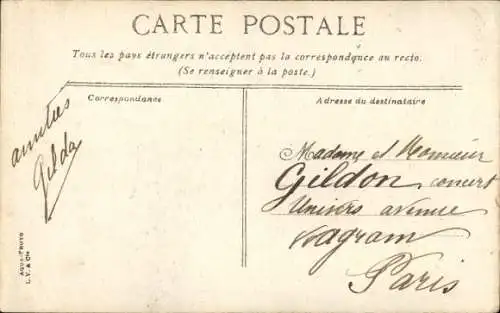 CARTE POSTALE
Tous les pays étrangers n'acceptent pas la correspondance au recto.
(Se renseigner à la poste.)
Correspondance
Adresse du destinataire
amitiés
Gilda
Madame et Monsieur
Gildon concert
Univers avenue
Wagram
Paris
AQUA-PHOTO
L.V. & Cie